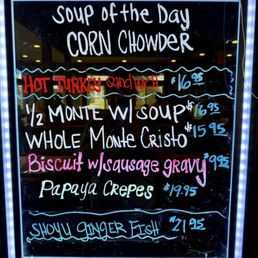 Soup of the Day
CORN CHOWDER
HOT TURKEY Sandwich $16.95
1/2 MONTE W/ SOUP $16.95
WHOLE Monte Cristo $15.95
Biscuit w/sausage gravy $9.95
Papaya Crepes $19.95
SHOYU GINGER FISH $21.95